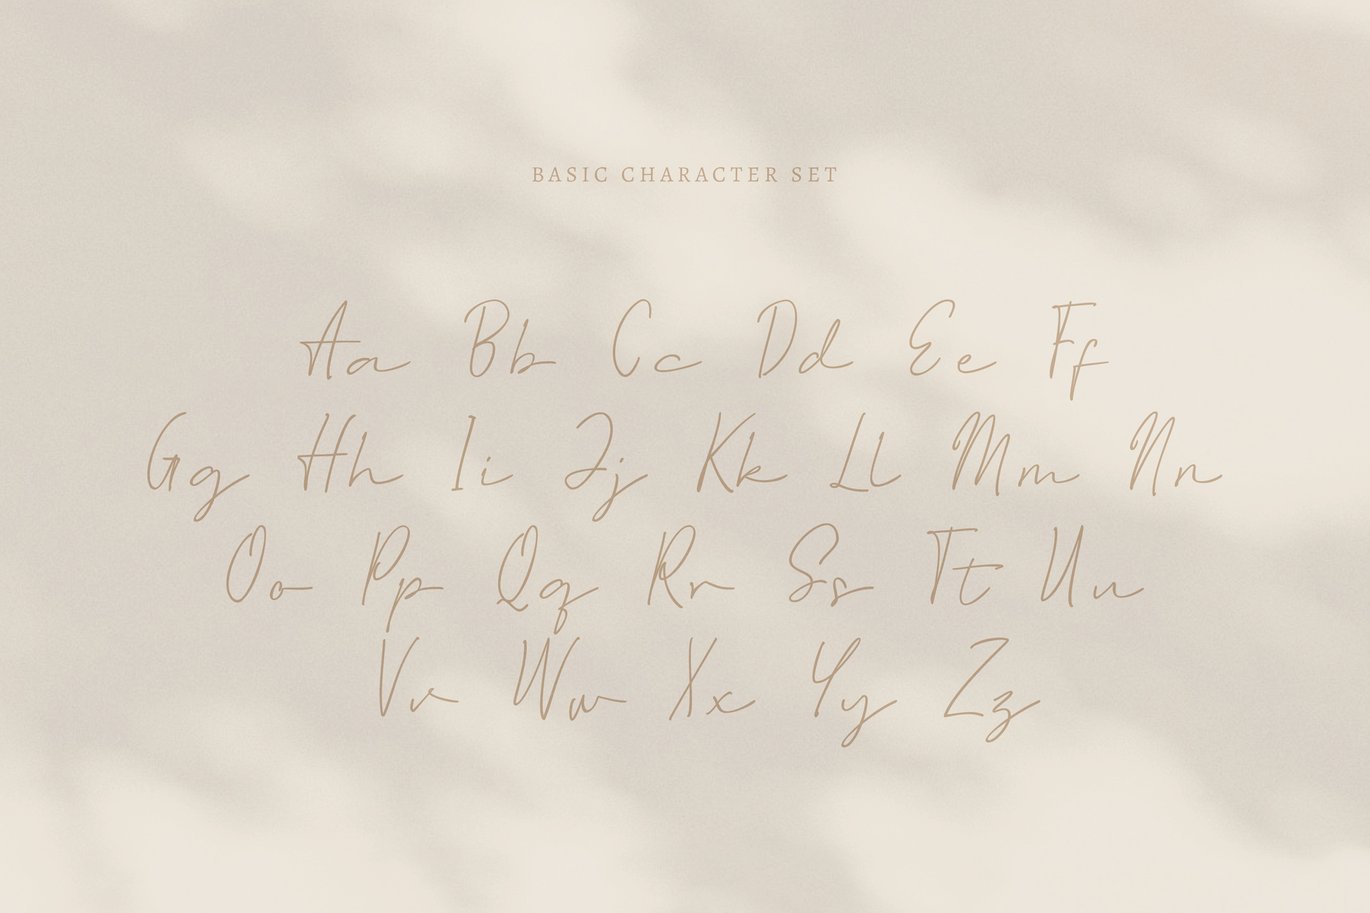 BASIC CHARACTER SET
Aa Bb Cc Dd Ee Ff
Gg Hh Ii Jj Kk Ll Mm Nn
Oo Pp Qq Rr Ss Tt Uu
Vv Ww Xx Yy Zz